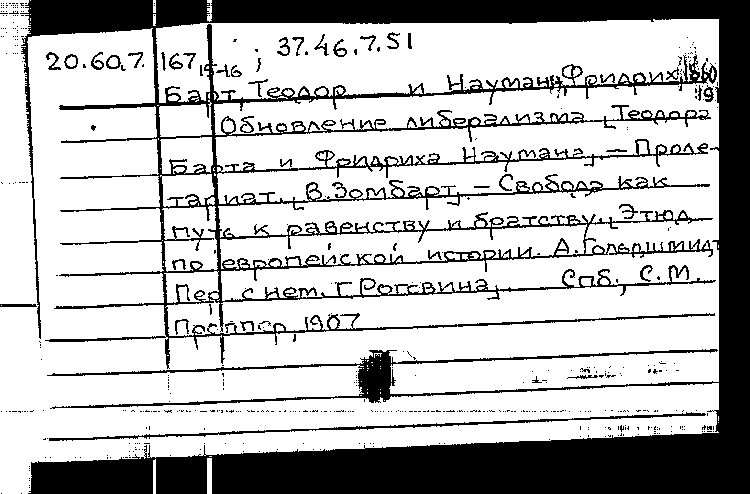 20.60.7. 167 15-16 ; 37.46.7.51
Барт, Теодор и Науман, Фридрих, 1860
191
Обновление либерализма [Теодора
Барта и Фридриха Наумана]. – Проле-
тариат. [В. Зомбарт]. – Свобода как
путь к равенству и братству. [Этюд
по европейской истории. А. Гольдшмидт
Пер. с нем. Г. Ротсвина]. Спб., С. М.
Проппер, 1907